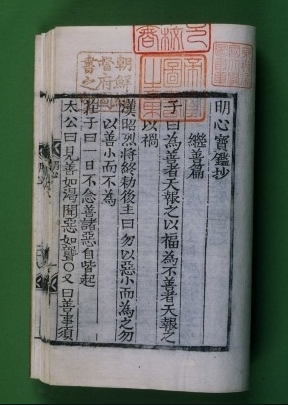 明心寶鑑抄
繼善篇
子曰為善者天報之以福為不善者天報之
以禍
漢昭烈將終勅後主曰勿以惡小而為之勿
以善小而不為
莊子曰一日不念善諸惡自皆起
太公曰見善如渴聞惡如聾○又曰善事須
朝鮮
督府圖
書之